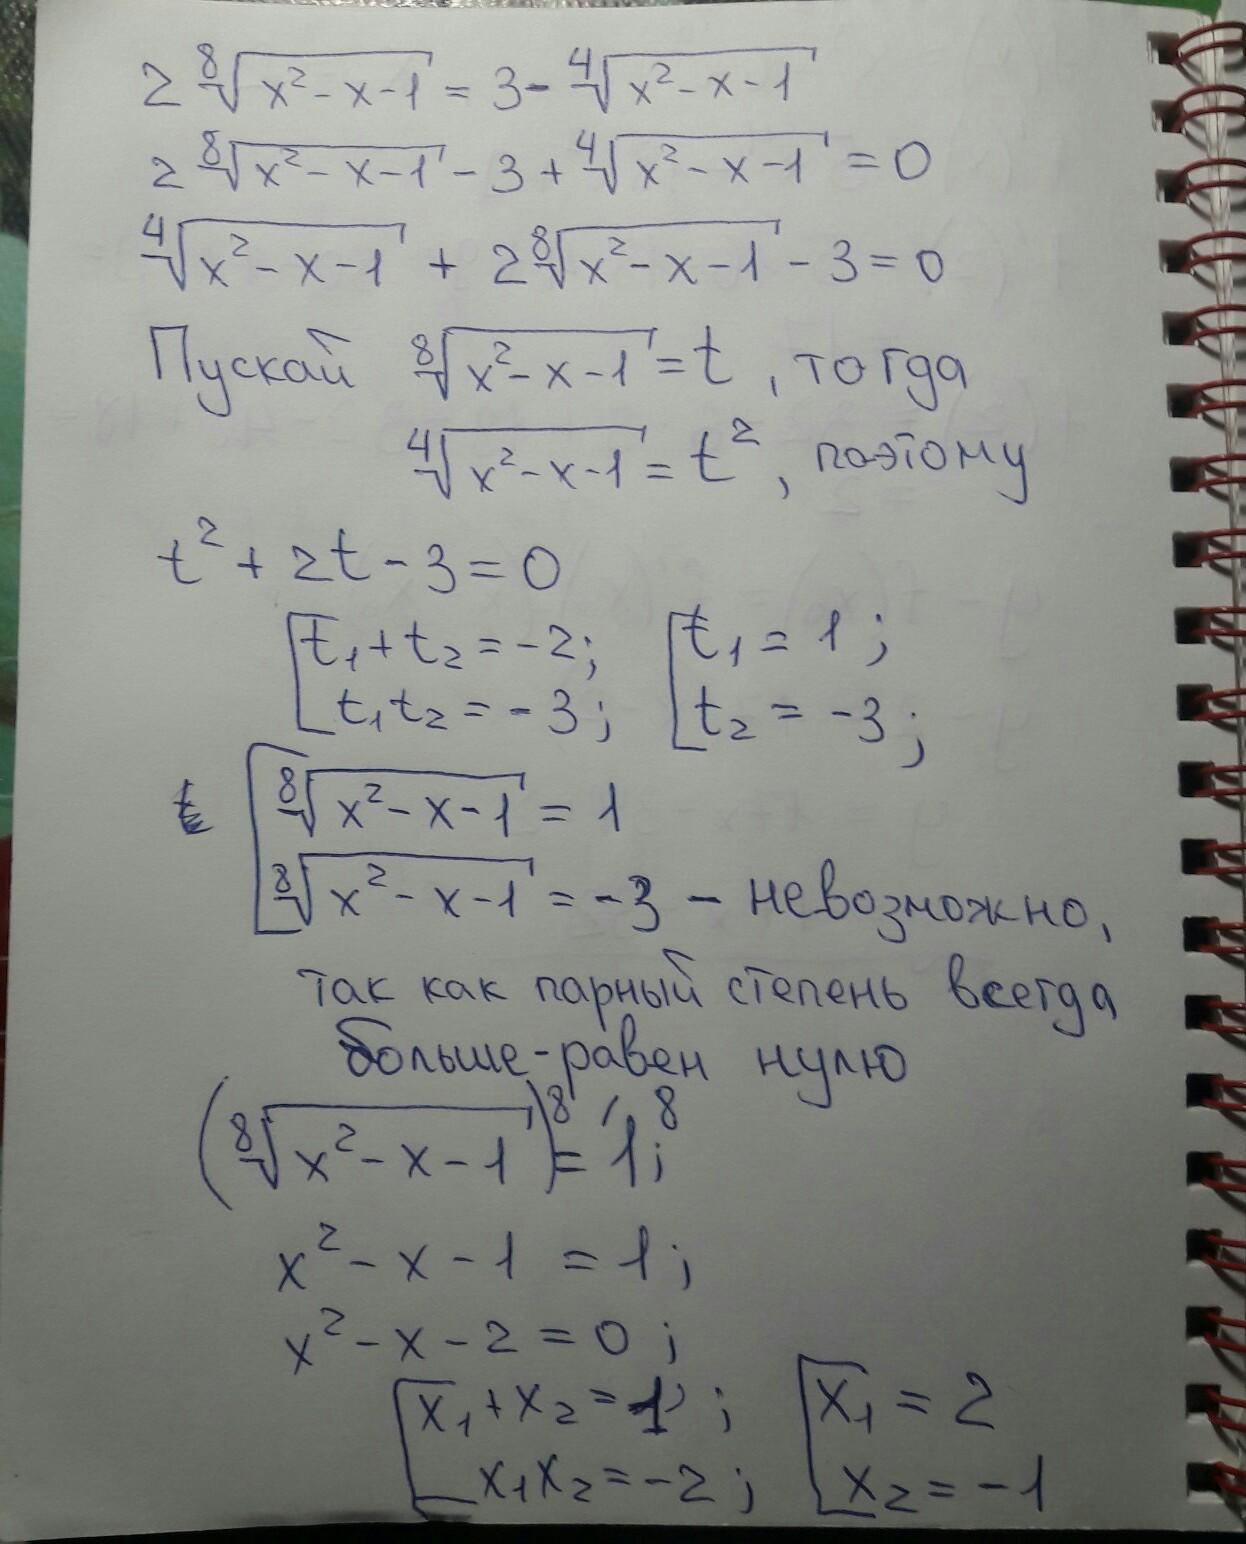 2 ⁸√(x² - x - 1) = 3 - ⁴√(x² - x - 1)
2 ⁸√(x² - x - 1) - 3 + ⁴√(x² - x - 1) = 0
⁴√(x² - x - 1) + 2 ⁸√(x² - x - 1) - 3 = 0
Пускай ⁸√(x² - x - 1) = t, тогда
⁴√(x² - x - 1) = t², поэтому
t² + 2t - 3 = 0
[t₁ + t₂ = -2; [t₁ = 1;
t₁t₂ = -3; t₂ = -3;
[⁸√(x² - x - 1) = 1
⁸√(x² - x - 1) = -3 - невозможно,
так как парный степень всегда
больше-равен нулю
(⁸√(x² - x - 1))⁸ = 1⁸;
x² - x - 1 = 1;
x² - x - 2 = 0;
[x₁ + x₂ = 1; [x₁ = 2
x₁x₂ = -2; x₂ = -1